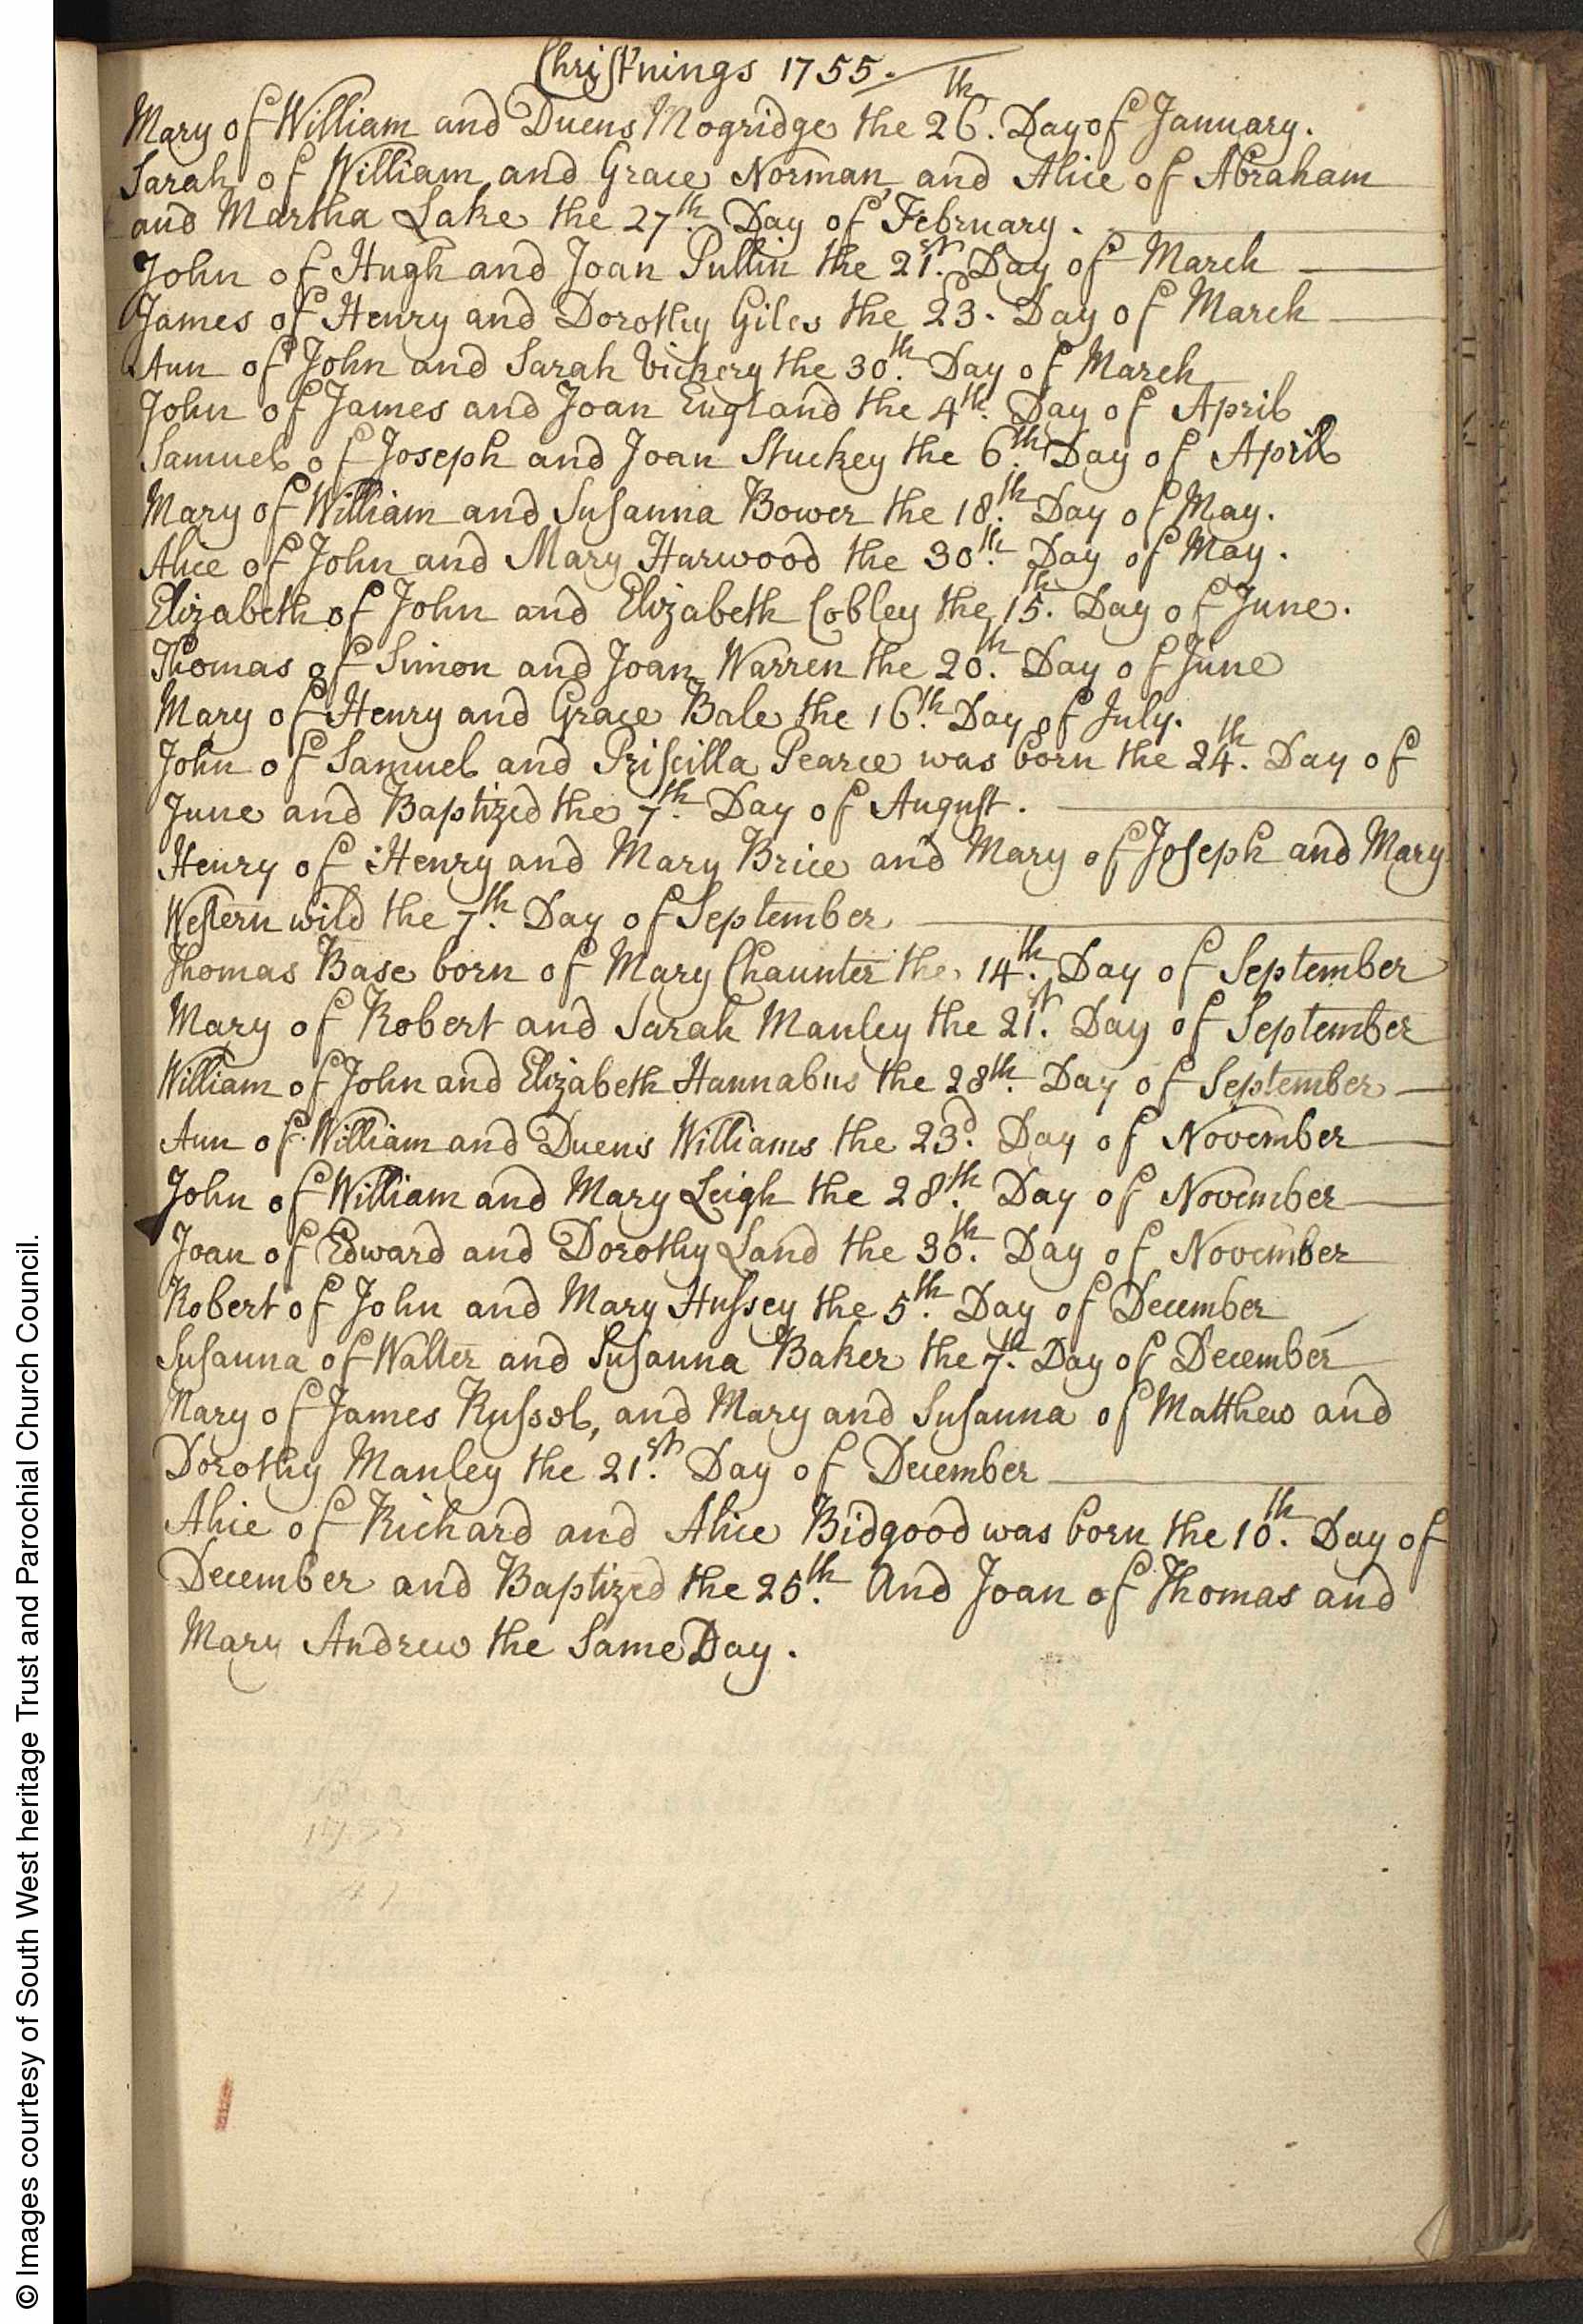 Christnings 1755.
Mary of William and Duens Mogridge the 26th. Day of January.
Sarah of William and Grace Norman, and Alice of Abraham
and Martha Lake the 27th. Day of February.
John of Hugh and Joan Pullin the 21st. Day of March
James of Henry and Dorothy Giles the 23. Day of March
Ann of John and Sarah Vickery the 30th. Day of March
John of James and Joan England the 4th. Day of April
Samuel of Joseph and Joan Stuckey the 6th. Day of April
Mary of William and Susanna Bower the 18th. Day of May.
Alice of John and Mary Harwood the 30th. Day of May.
Elizabeth of John and Elizabeth Cobley the 15th. Day of June.
Thomas of Simon and Joan Warren the 20th. Day of June
Mary of Henry and Grace Bale the 16th. Day of July.
John of Samuel and Priscilla Pearce was born the 24th. Day of
June and Baptized the 7th. Day of August.
Henry of Henry and Mary Brice and Mary of Joseph and Mary
Western wild the 7th. Day of September
Thomas Base born of Mary Chaunter the 14th. Day of September
Mary of Robert and Sarah Manley the 21st. Day of September
William of John and Elizabeth Hannabus the 28th. Day of September
Ann of William and Duens Williams the 23d. Day of November
John of William and Mary Leigh the 28th. Day of November
Joan of Edward and Dorothy Land the 30th. Day of November
Robert of John and Mary Hussey the 5th. Day of December
Susanna of Walter and Susanna Baker the 7th. Day of December
Mary of James Russel, and Mary and Susanna of Matthew and
Dorothy Manley the 21st. Day of December
Alice of Richard and Alice Bidgood was born the 10th. Day of
December and Baptized the 25th. And Joan of Thomas and
Mary Andrew the Same Day.
© Images courtesy of South West heritage Trust and Parochial Church Council.